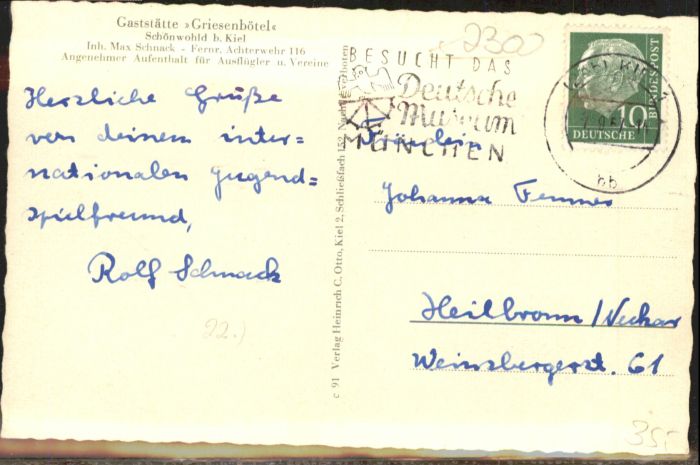 Gaststätte »Griesenbötel«
Schönwohld b. Kiel
Inh. Max Schnack - Fernr. Achterwehr 116
Angenehmer Aufenthalt für Ausflügler u. Vereine
Herzliche Grüße
von deinem inter=
nationalen Jugend=
spielfreund,
Rolf Schnack
22.)
c 91 Verlag Heinrich C. Otto, Kiel 2, Schließfach 152, Nachdr. verboten
2300
BESUCHT DAS
Deutsche
Museum
MÜNCHEN
KIEL
bb
10
DEUTSCHE
BUNDESPOST
Fräulein
Johanna
Heilbronn/Neckar
Weinsbergerst. 61
35,-